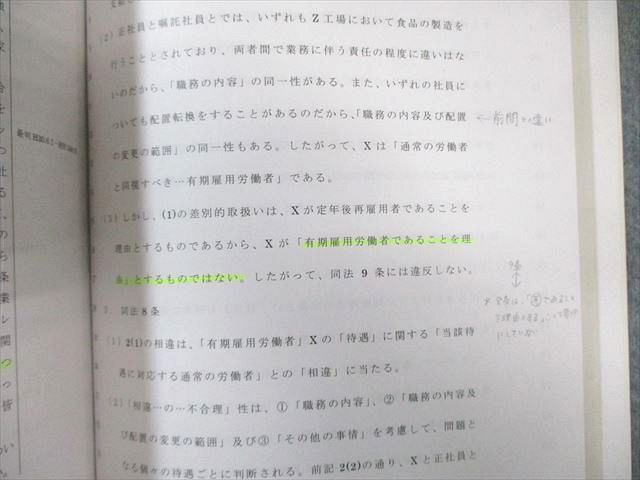 (2) 正社員と嘱託社員とでは、いずれも Z 工場において食品の製造を
行うこととされており、両者間で業務に伴う責任の程度に違いはな
いのだから、「職務の内容」の同一性がある。また、いずれの社員に
ついても配置転換をすることがあるのだから、「職務の内容及び配置
の変更の範囲」の同一性もある。したがって、X は「通常の労働者
と同視すべき…有期雇用労働者」である。
(3) しかし、(1)の差別的取扱いは、X が定年後再雇用者であることを
理由とするものであるから、X が「有期雇用労働者であることを理
由」とするものではない。したがって、同法 9 条には違反しない。
2. 同法 8 条
(1) 2(1)の相違は、「有期雇用労働者」X の「待遇」に関する「当該待
遇に対応する通常の労働者」との「相違」に当たる。
(2)「相違…の…不合理」性は、①「職務の内容」、②「職務の内容及
び配置の変更の範囲」及び③「その他の事情」を考慮して、問題と
なる個々の待遇ごとに判断される。前記 2(2)の通り、X と正社員と
←前問との違い
9条